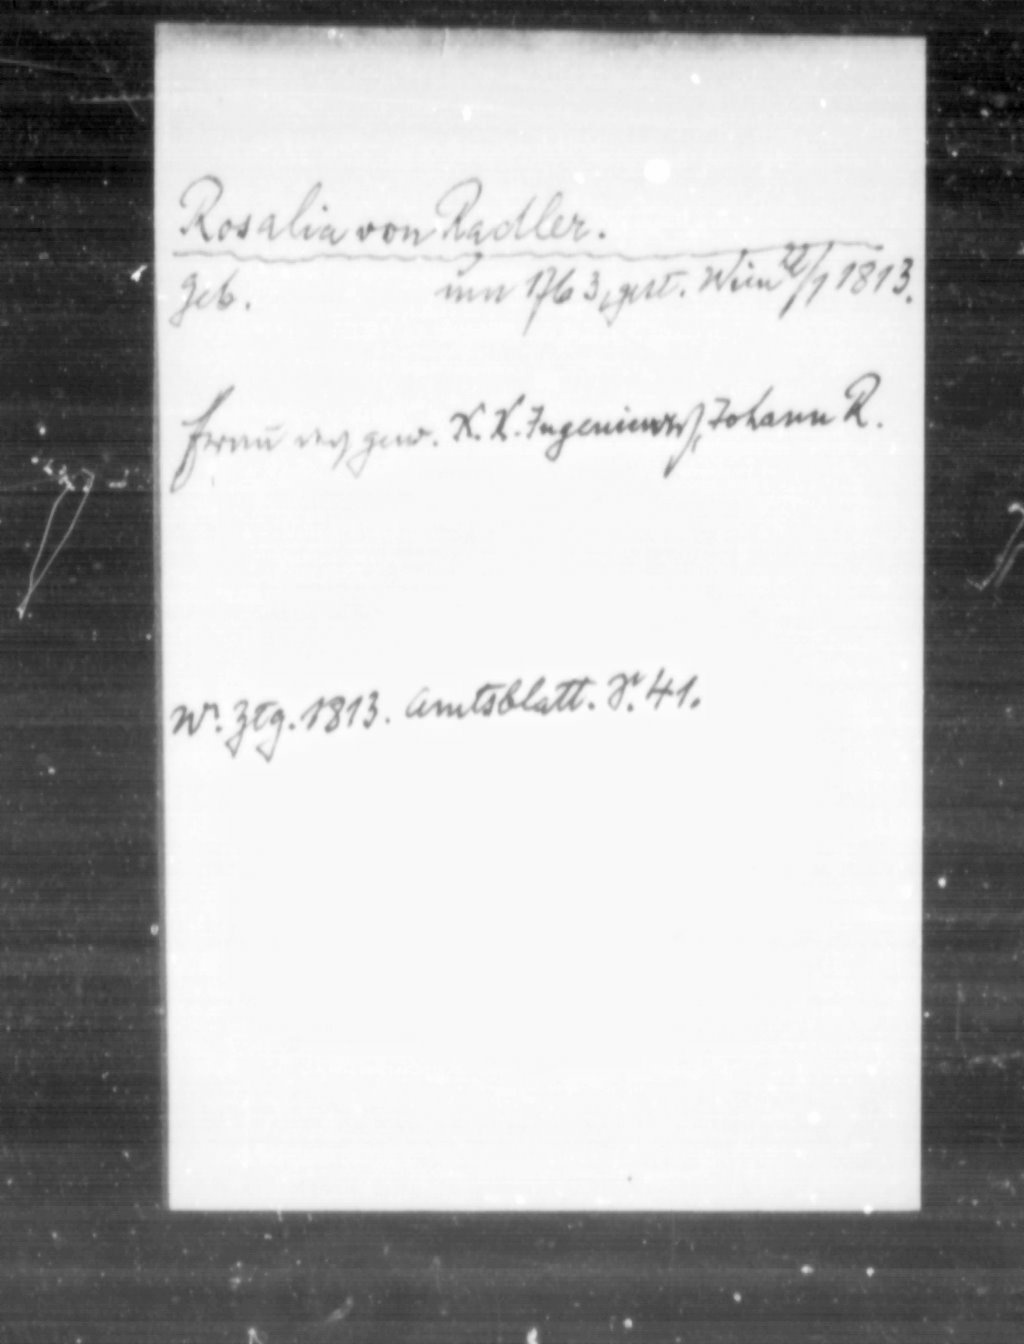 Rosalia von Radler.
geb. um 1763, gest. Wien 22/1 1813.
Frau des gew. K. K. Ingenieurs, Johann R.
Wr. Ztg. 1813. Amtsblatt. S. 41.